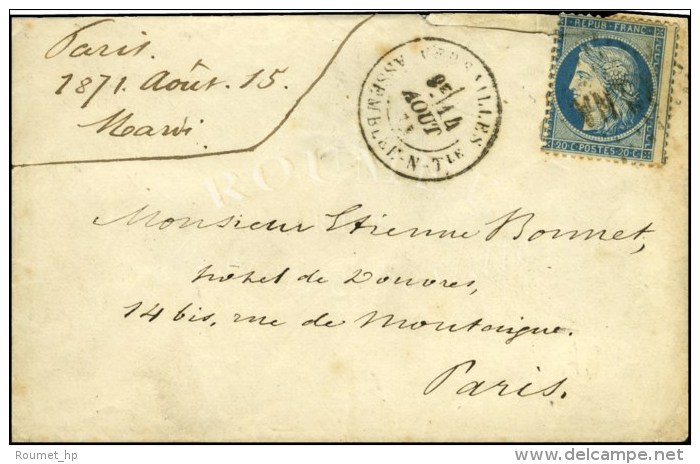 Paris.
1871. Août. 15.
Mardi
VERSAILLES
14
AOUT
71
ASSEMBLÉE-N-TLE
REPUB · FRANC
20·C·POSTES·20·C
ROUMET
Monsieur Etienne Bonnet,
hôtel de Douvres,
14 bis, rue de Montaigne.
Paris.
Roumet_hp
©delcampe.net